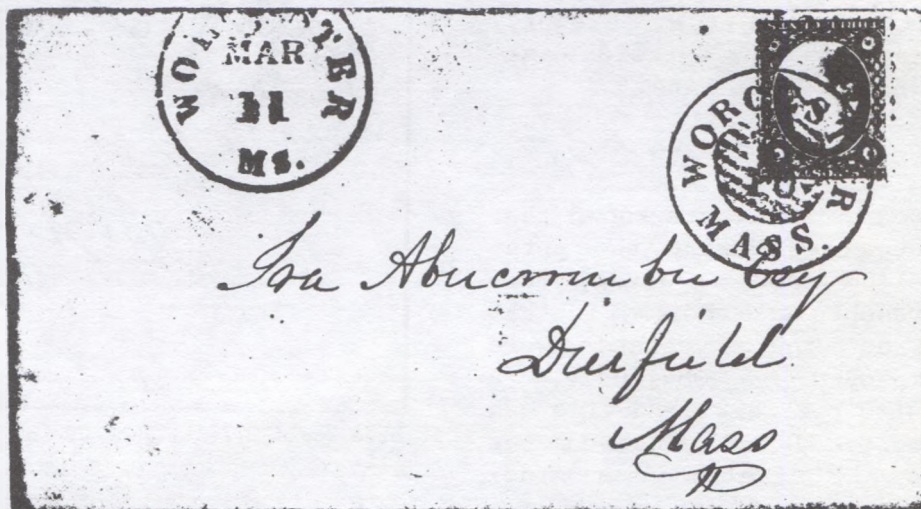 WORCESTER
MAR
11
Ms.
WORCESTER
MASS.
Ira Abercrombie Esq
Deerfield
Mass